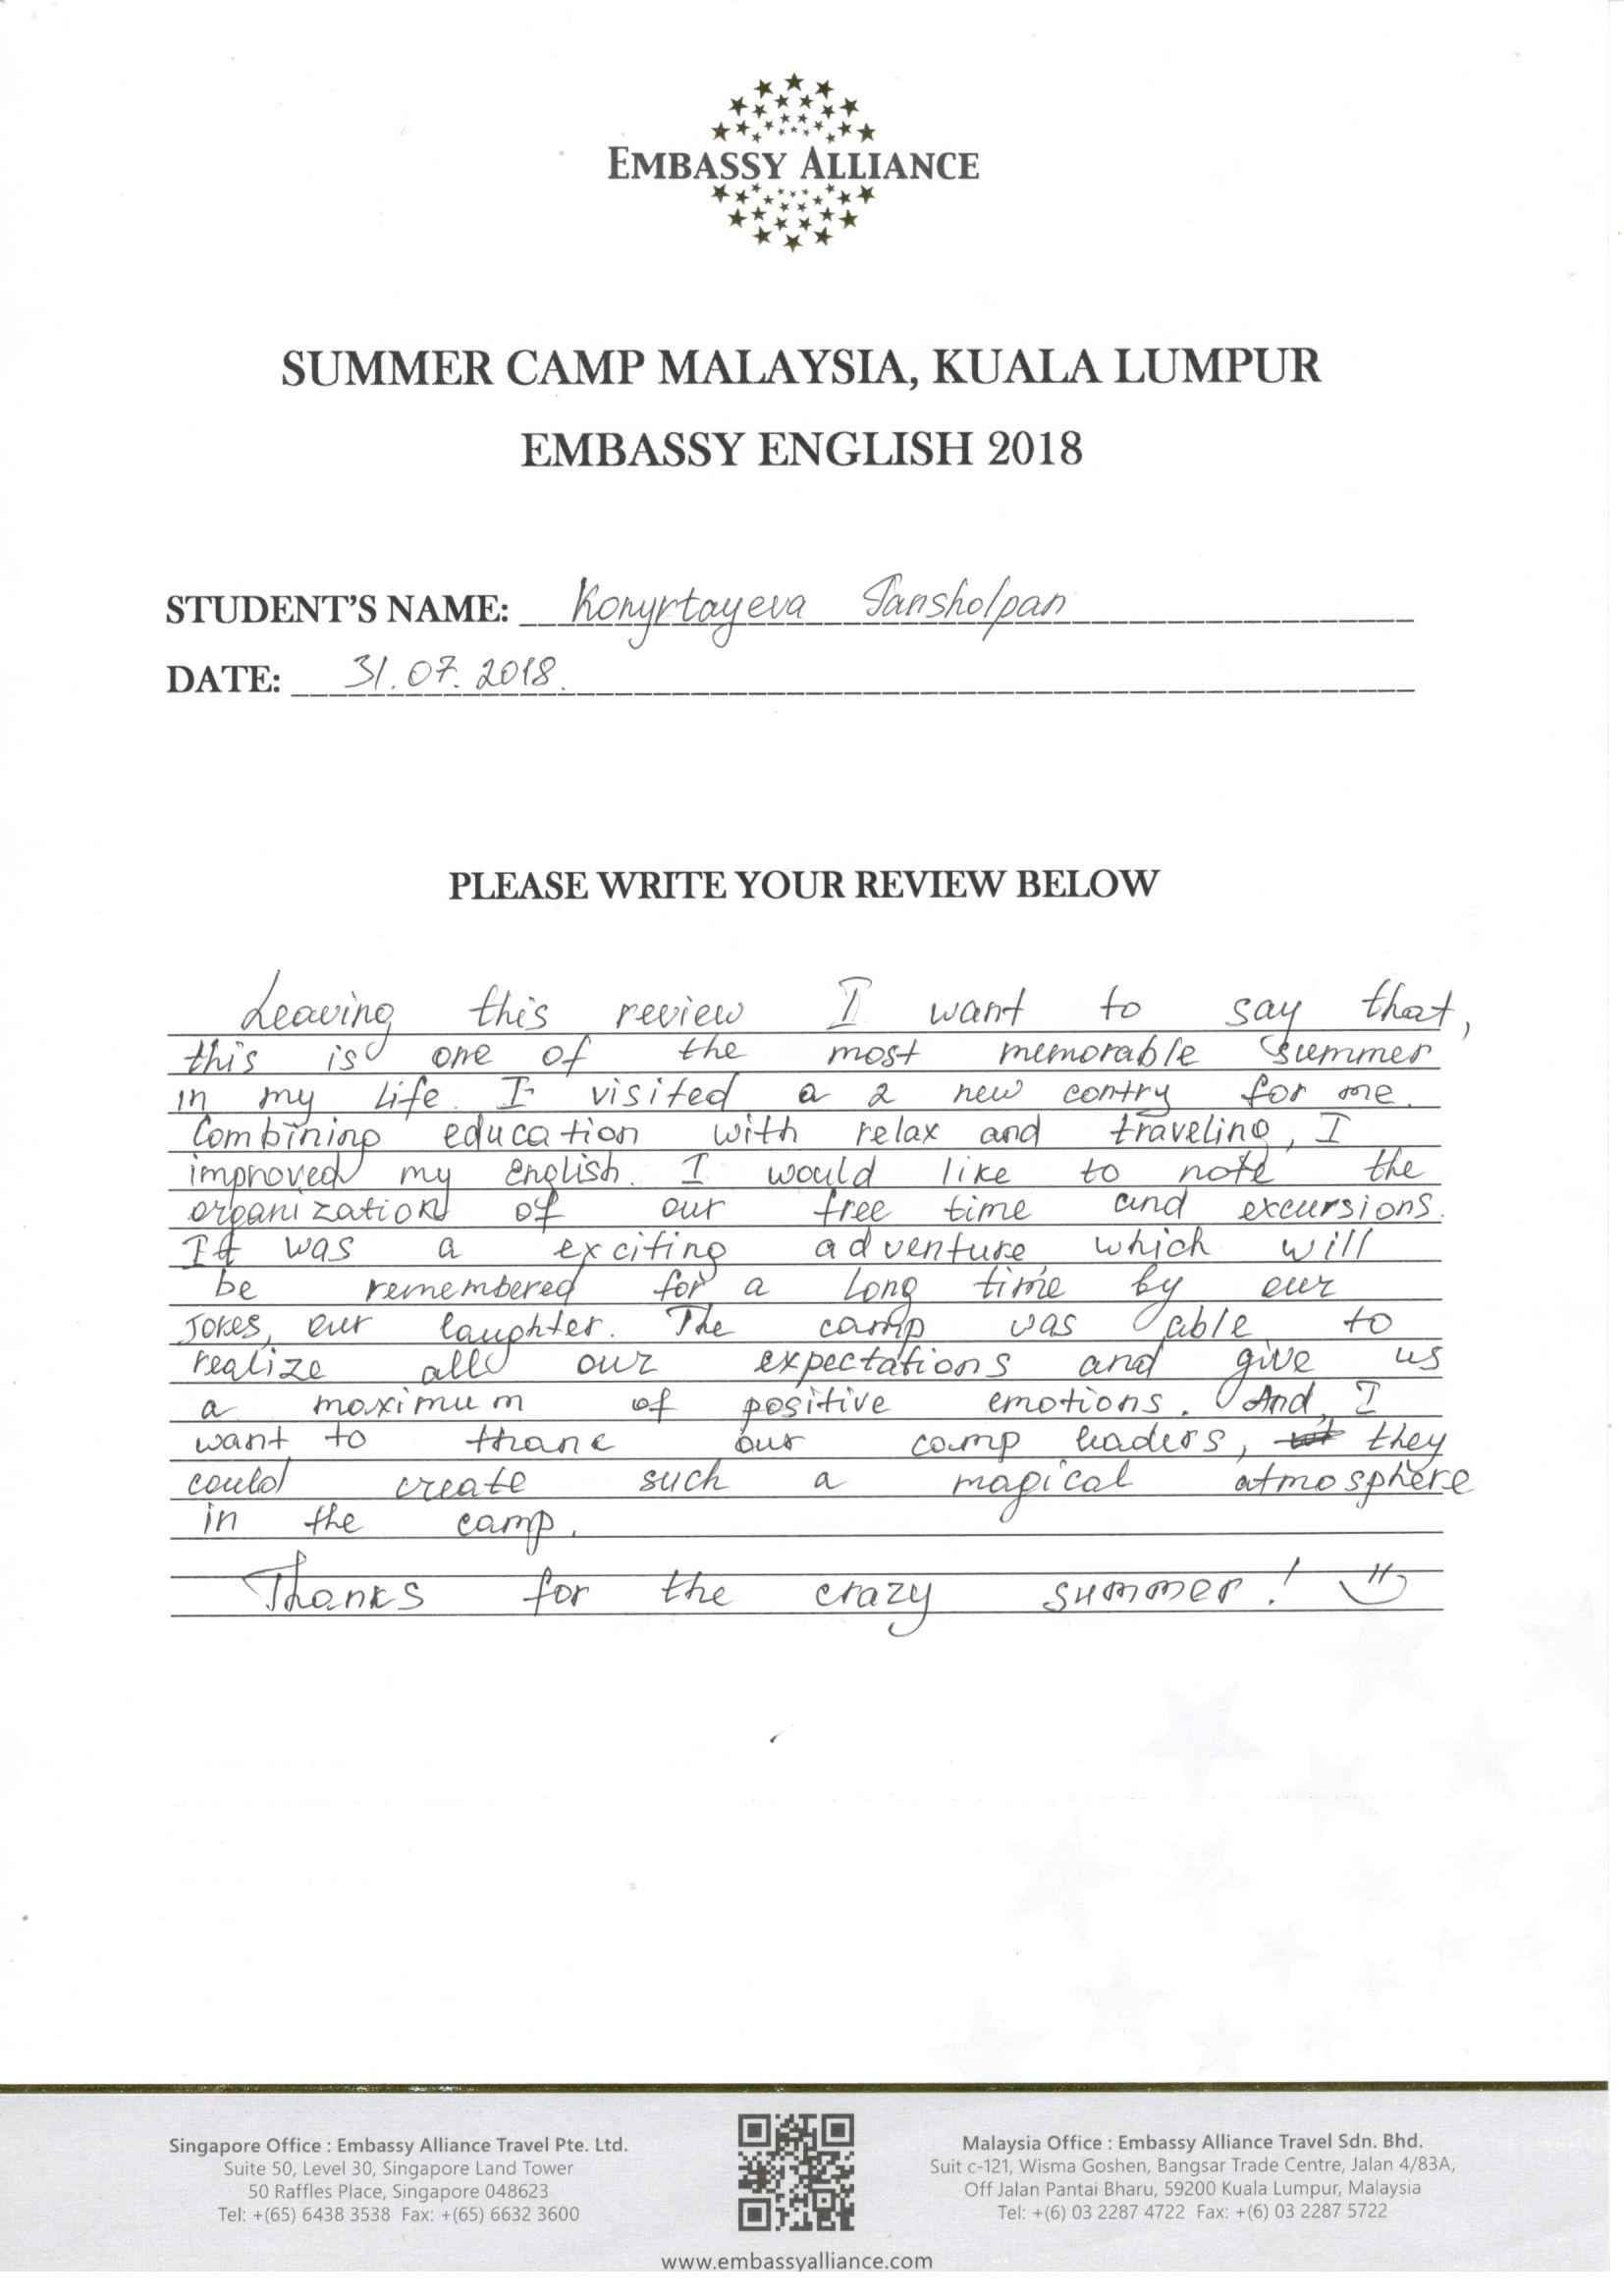 EMBASSY ALLIANCE
SUMMER CAMP MALAYSIA, KUALA LUMPUR
EMBASSY ENGLISH 2018
STUDENT'S NAME: Konyrtayeva Tansholpan
DATE: 31.07.2018.
PLEASE WRITE YOUR REVIEW BELOW
Leaving this review I want to say that,
this is one of the most memorable summer
in my life. I visited a 2 new contry for me.
Combining education with relax and traveling, I
improved my English. I would like to note the
organization of our free time and excursions.
It was a exciting adventure which will
be remembered for a long time by our
jokes, our laughter. The camp was able to
realize all our expectations and give us
a maximum of positive emotions. And, I
want to thank our camp leaders, they
could create such a magical atmosphere
in the camp.
Thanks for the crazy summer!
Singapore Office : Embassy Alliance Travel Pte. Ltd.
Suite 50, Level 30, Singapore Land Tower
50 Raffles Place, Singapore 048623
Tel: +(65) 6438 3538 Fax: +(65) 6632 3600
Malaysia Office : Embassy Alliance Travel Sdn. Bhd.
Suit c-121, Wisma Goshen, Bangsar Trade Centre, Jalan 4/83A,
Off Jalan Pantai Bharu, 59200 Kuala Lumpur, Malaysia
Tel: +(6) 03 2287 4722 Fax: +(6) 03 2287 5722
www.embassyalliance.com